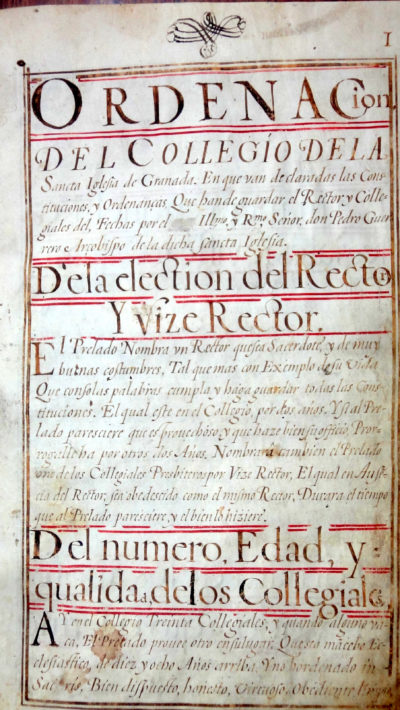 1
ORDENACion.
DEL COLLEGIO DE LA
Sancta Iglesia de Granada. En que van declaradas las Cons-
tituciones, y Ordenanças, Que han de guardar el Rector, y Colle-
giales del, Fechas por el Illmo, y Rmo, Señor, don Pedro Guer
rero Arcobispo de la dicha sancta Iglesia.
D'ela election del Recto R
Y Vize Rector.
El Prelado Nombra vn Rector que sea Sacerdote, y de muy
buenas costumbres, Tal que mas con Exemplo de su Vida
Que con solas palabras cumpla y haga guardar todas las Cons-
tituciones. El qual este en el Collegio, por dos años, Y si al Pre-
lado paresciere que es provechoso, y que haze bien su officio, Pror-
rogalle ha por otros dos Años, Nombrará tambien el Prelado
vno de los Collegiales Presbiteros, por Vize Rector, El qual en Ausē-
cia del Rector, sea obedescido como el mismo Rector, Durara el tiempo
que al Prelado paresciere, y el bien lo hiziere.
Del numero, Edad, y-
qualidad, de los Collegiales,
AY en el Collegio Treinta Collegiales, y quando alguno va-
ca, El Prelado provee otro en su lugar, Que sea mācebo Ec-
clesiastico, de diez y ocho Años arriba, Y no hordenado in
Sacris, Bien dispuesto, honesto, Virtuoso, Obediente,